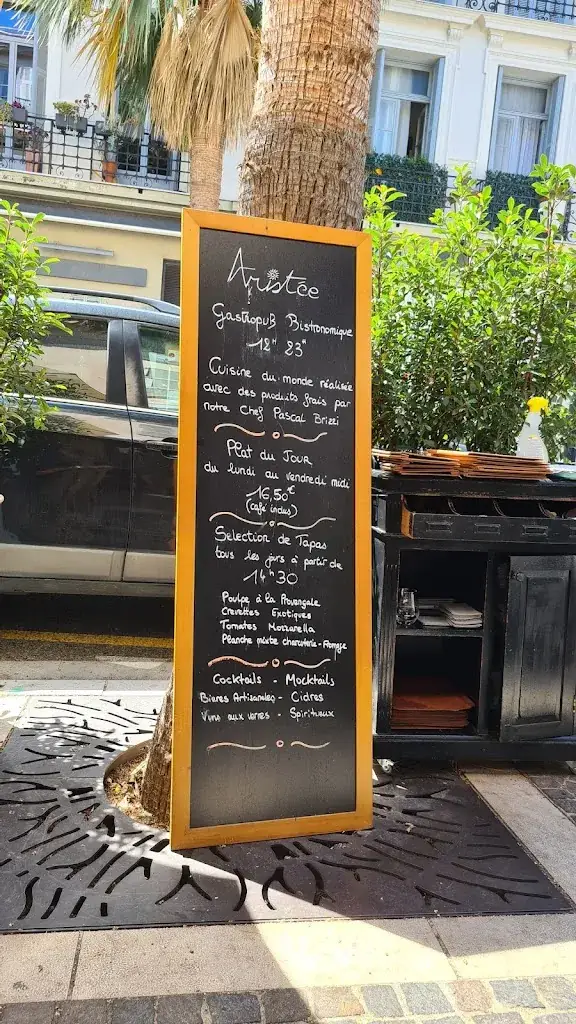 Aristée
Gastropub Bistronomique
12H 23H
Cuisine du monde réalisée
avec des produits frais par
notre Chef Pascal Brizzi
Plat du Jour
du lundi au vendredi midi
16,50€
(café inclus)
Selection de Tapas
tous les jours à partir de
14H30
Poulpe à la Provençale
Crevettes Exotiques
Tomates Mozzarella
Planche mixte charcuterie-Fromage
Cocktails - Mocktails
Bières Artisanales - Cidres
Vins aux verres - Spiritueux